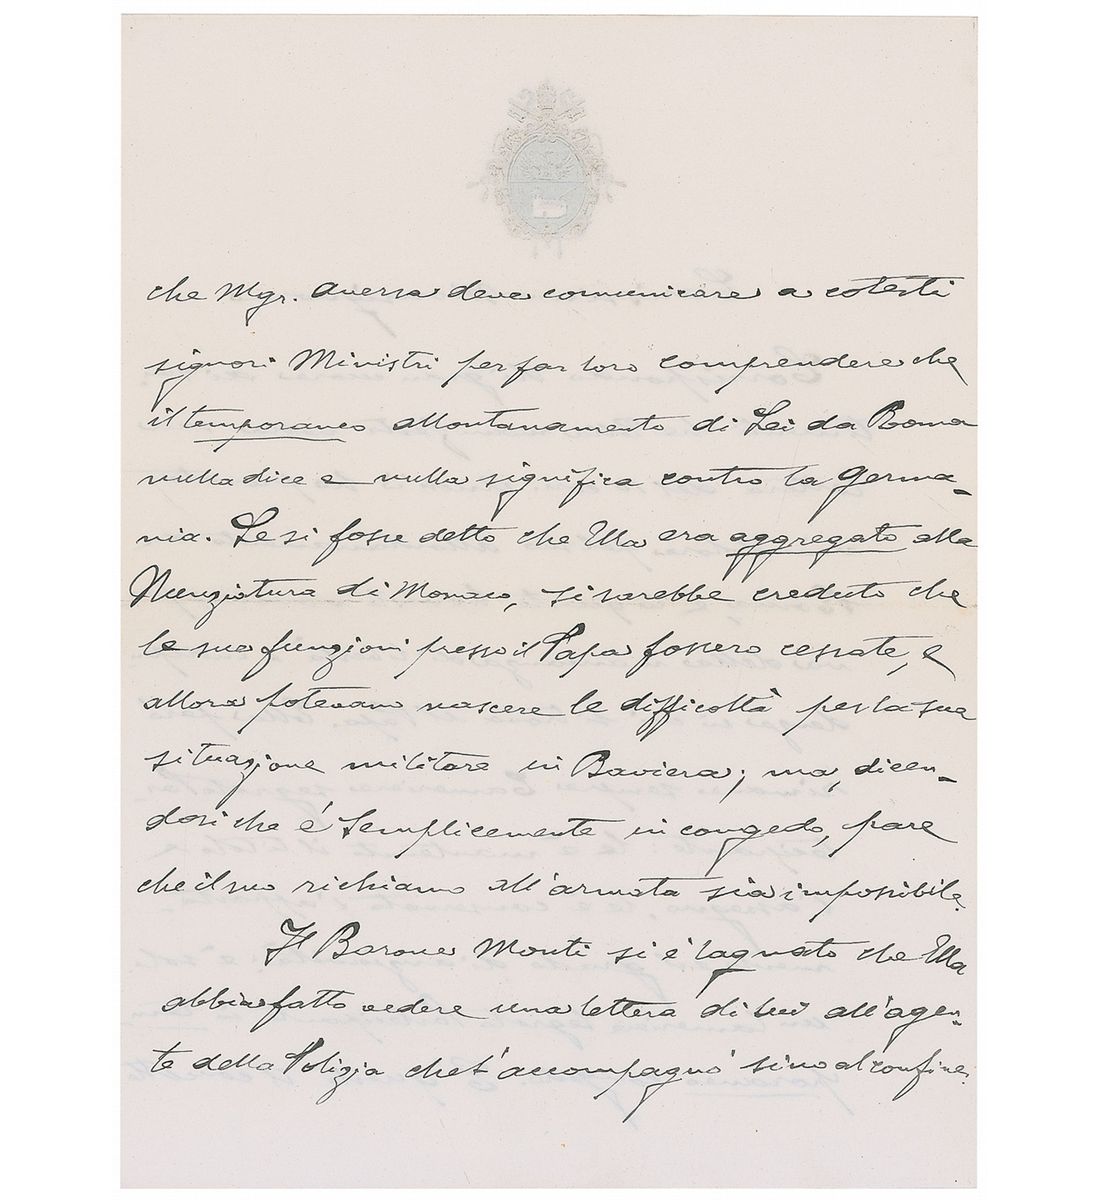 che Mgr. Aversa deve comunicare a cotesti
signori Ministri per far loro comprendere che
il temporaneo allontanamento di Lei da Roma
nulla dice e nulla significa contro la Germa-
nia. Se si fosse detto che Ella era aggregato alla
Nunziatura di Monaco, si sarebbe creduto che
le sue funzioni presso il Papa fossero cessate, e
allora potevano nascere le difficoltà per la sua
situazione militare in Baviera; ma, dicen-
dosi che è semplicemente in congedo, pare
che il suo richiamo all'armata sia impossibile.
Il Barone Monti si è lagnato che Ella
abbia fatto vedere una lettera di lui all'agen-
te della Polizia che L'accompagnò sino al confine;